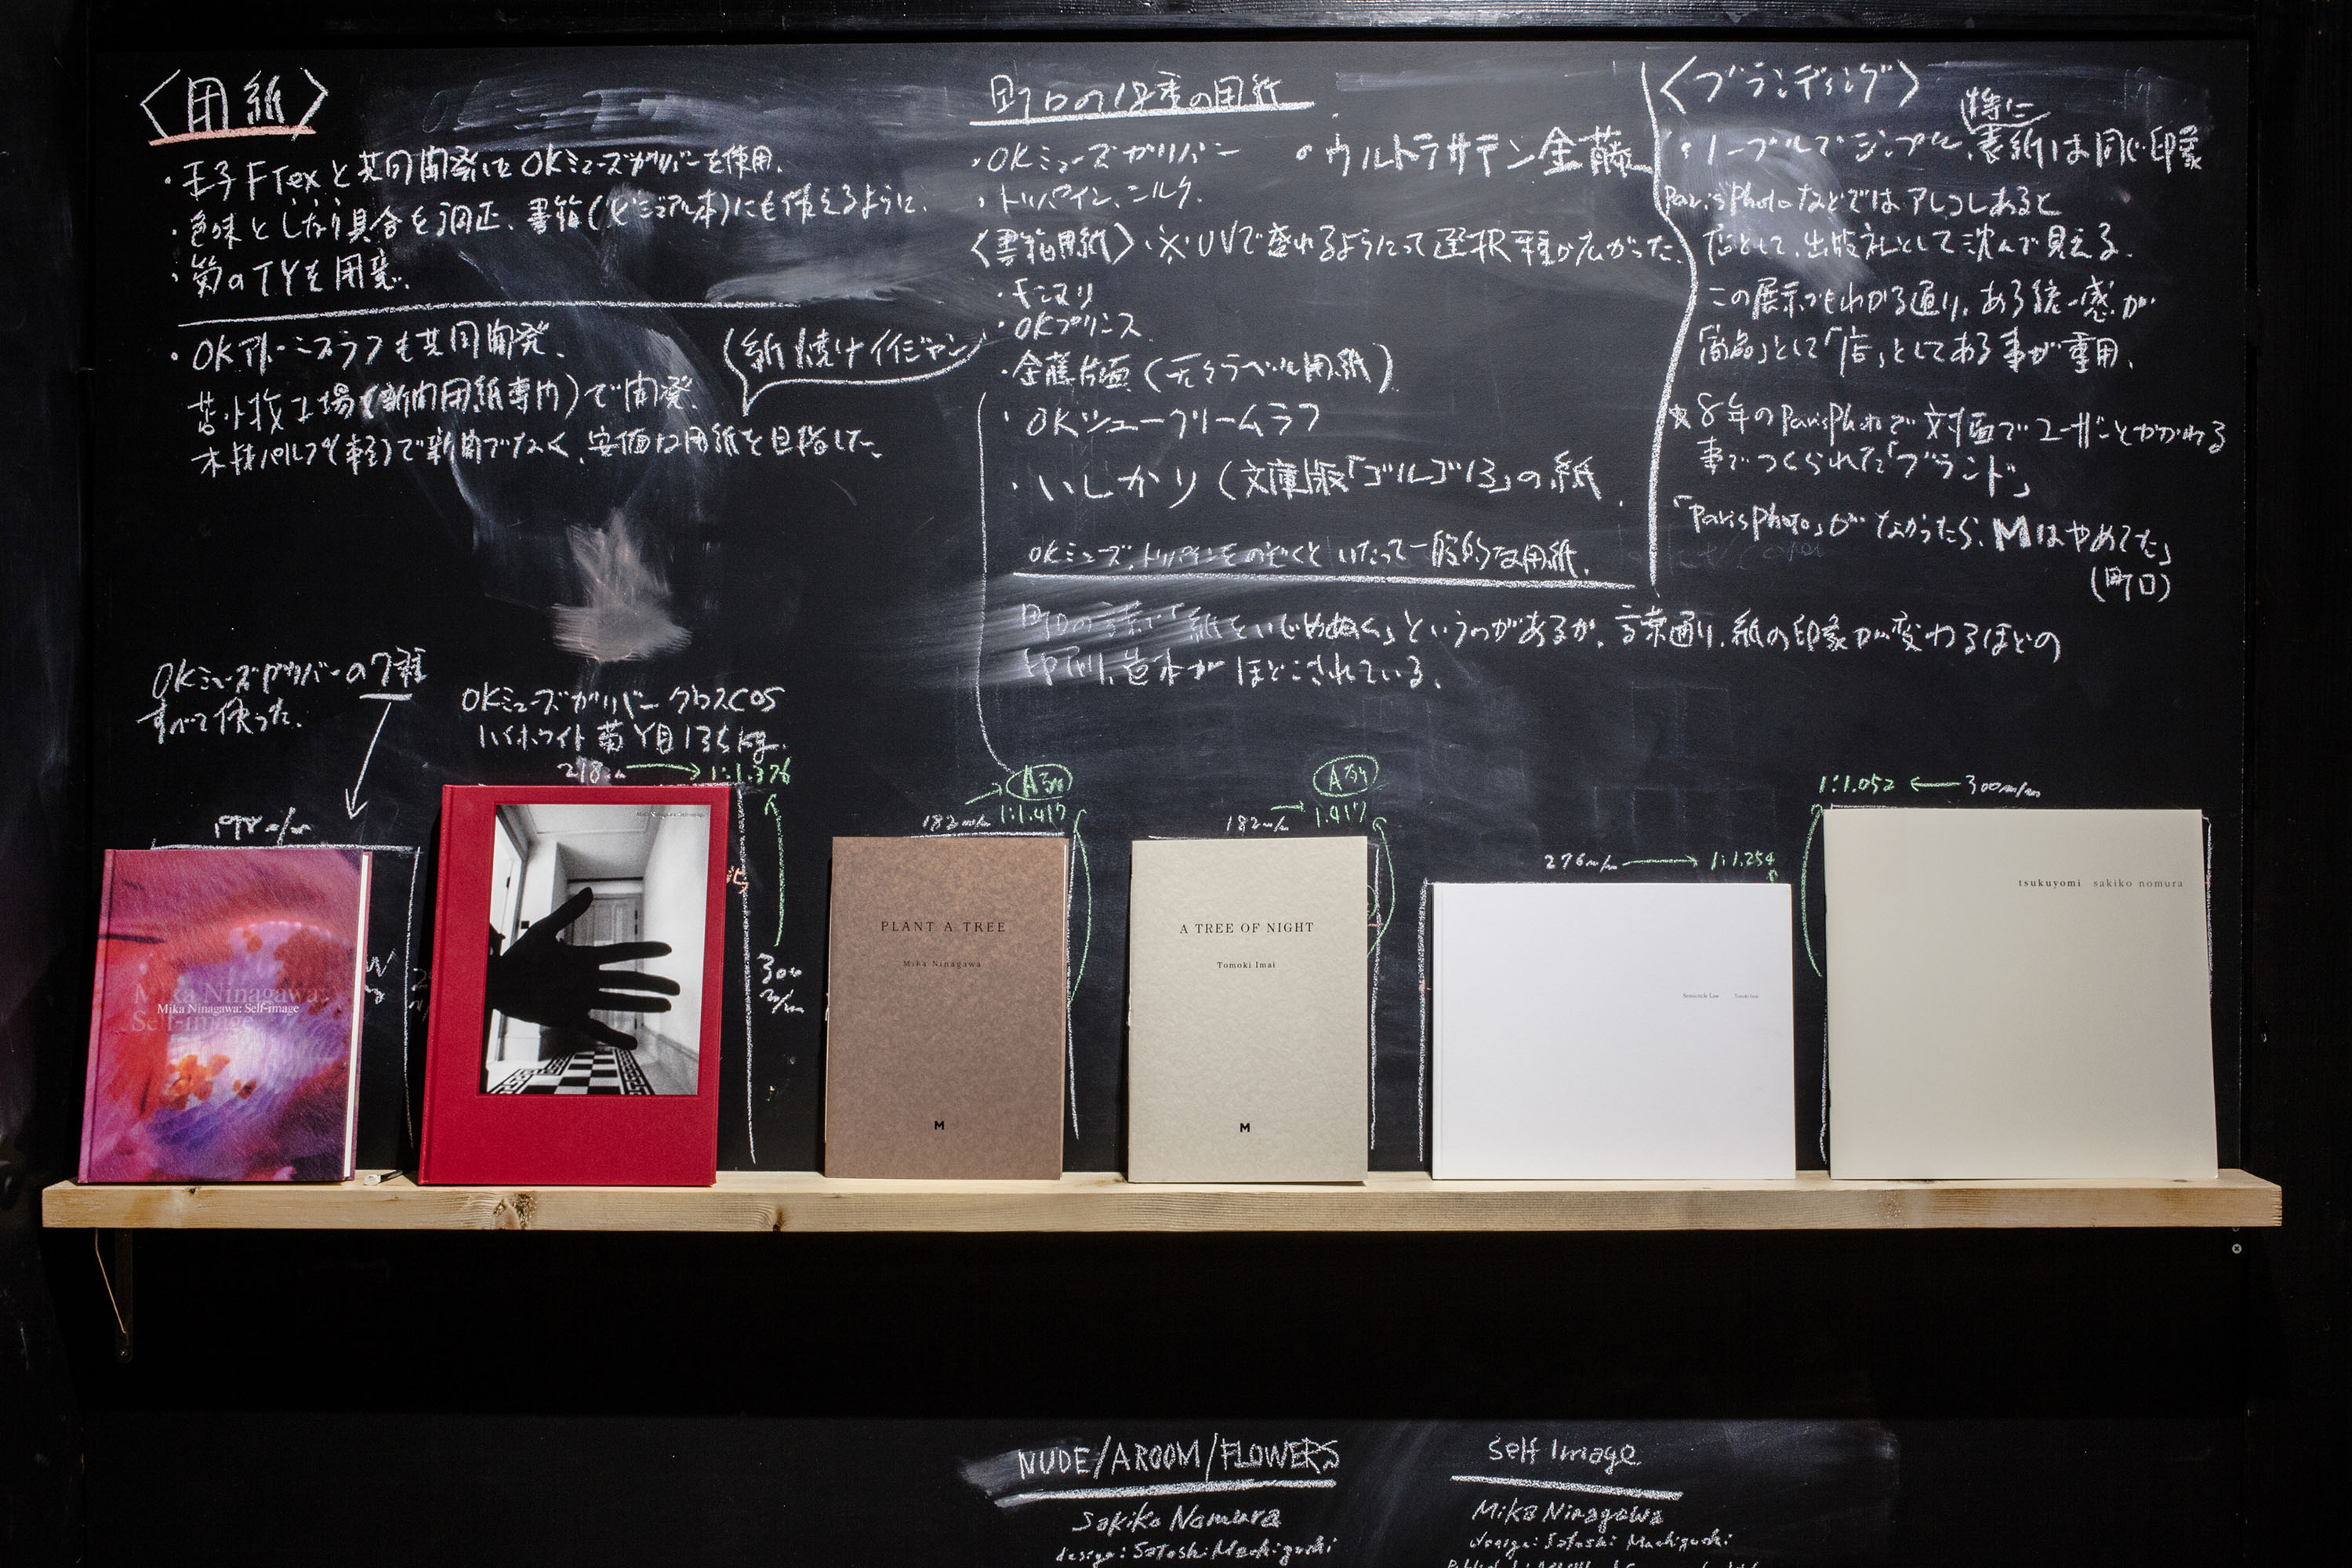 〈用紙〉
・王子FTexと共同開発したOKミューズガリバーを使用.
・色味としなり具合を調正、書籍(ビジュアル本)にも使えるように.
・菊のTYを用意.
・OKアドニスラフも共同開発.
苫小牧工場(新聞用紙専門)で開発.
木材パルプ(軽)で新聞でなく、安価な用紙を目指した.
(紙焼けイイジャン)
町口の18番の用紙
・OKミューズガリバー
・ウルトラサテン金藤
・トリパイン、ニルク.
〈書籍用紙〉※UVで盛れるようになって選択種が広がった.
・モンマリ
・OKプリンス
・金藤片面(元々ラベル用紙)
・OKシュークリームラフ
・いしかり(文庫版「ゴルゴ13」の紙
OKミューズ、トリパインをのぞくといたって一般的な用紙.
町口の言葉で「紙をいじめぬく」というのがあるが、言葉通り、紙の印象が変わるほどの
印刷、造本がほどこされている.
〈ブランディング〉
特に
・ノーブルでシンプル、表紙は同じ印象
Paris Photoなどではアレコレあると
店として、出版社として沈んで見える.
この展示でもわかる通り、ある統一感が
「商品」として「店」としてある事が重用.
★8年のParis Photoで対面でユーザーとかかわる
事でつくられた「ブランド」
「Paris Photo」がなかったら、Mはやめてた」
(町口)
OKミューズガリバーの7種
すべて使った.
OKミューズガリバー グロスCOS
ハイホワイト 菊Y目 135kg.
218m/m → 1:1.376
300
m/m
A判
182m/m 1:1.417
A判
182m/m 1.417
276m/m → 1:1.254
1:1.052 ← 300m/m
Mika Ninagawa:
Self-image
Mika Ninagawa: Self-image
PLANT A TREE
Mika Ninagawa
M
A TREE OF NIGHT
Tomoki Imai
M
Semicircle Law Tomoki Imai
tsukuyomi sakiko nomura
NUDE/A ROOM/FLOWERS
Sakiko Nomura
design: Satoshi Machiguchi
Self Image
Mika Ninagawa
design: Satoshi Machiguchi